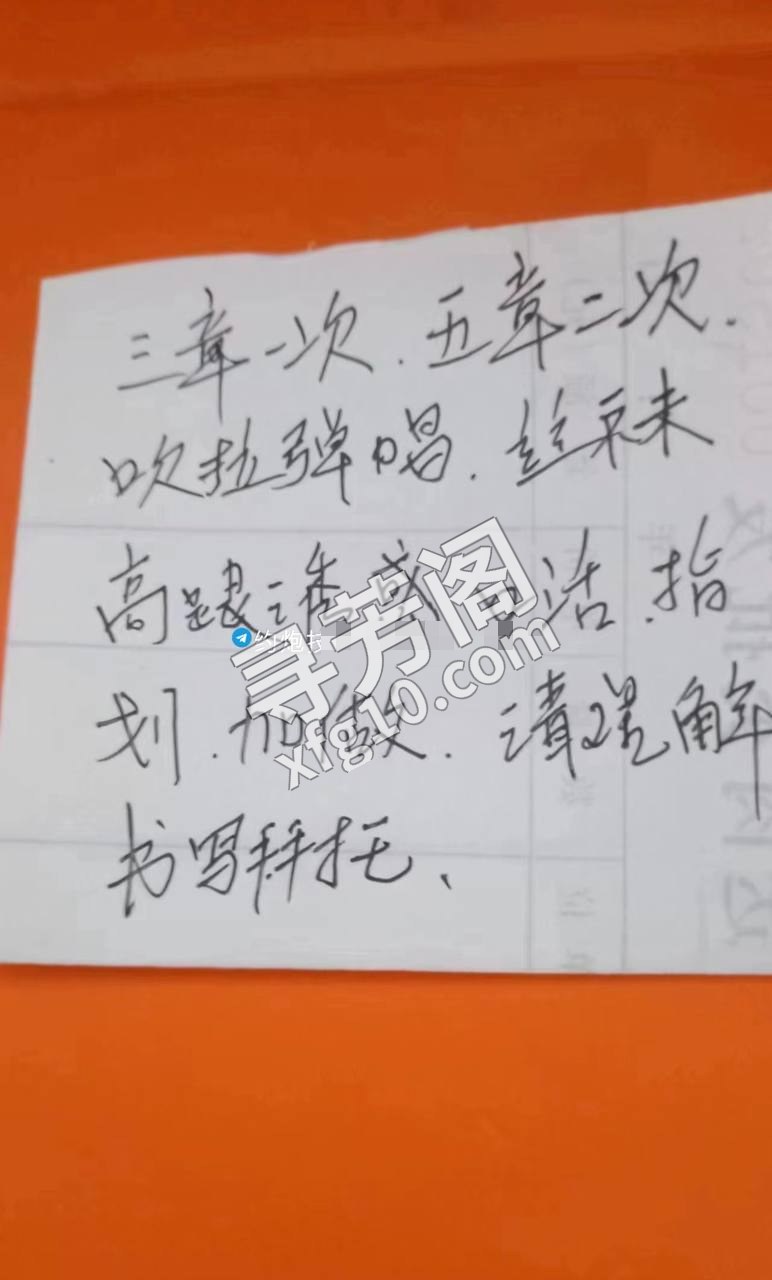 三章一次.五章二次.
吹拉弹唱.丝袜
高跟诱惑 口活.指
约炮
寻芳阁
xfg10.com
划.加微.请理解
书写拜托、